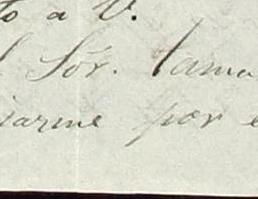 to a V.
l Sór. Tama
iarme por e